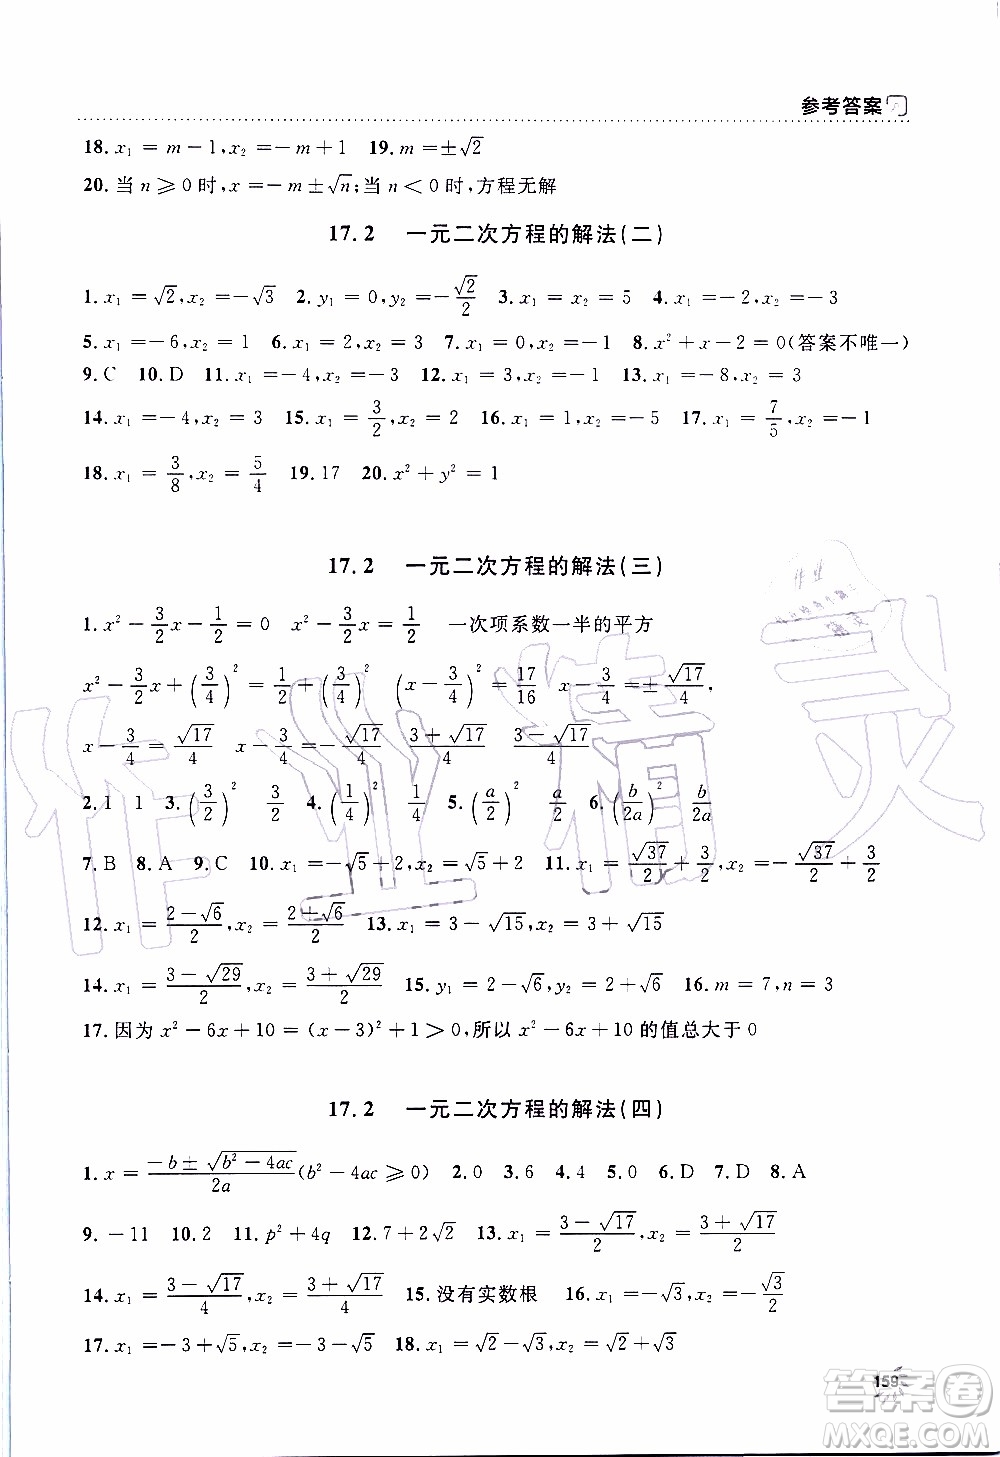 参考答案
18. x₁ = m－1, x₂ =－m＋1 19. m =±√2
20. 当 n ⩾ 0 时, x =－m±√n; 当 n < 0 时, 方程无解
17.2 一元二次方程的解法(二)
1. x₁ = √2, x₂ =－√3 2. y₁ = 0, y₂ =－√2/2 3. x₁ = x₂ = 5 4. x₁ =－2, x₂ =－3
5. x₁ =－6, x₂ = 1 6. x₁ = 2, x₂ = 3 7. x₁ = 0, x₂ =－1 8. x²＋x－2 = 0(答案不唯一)
9. C 10. D 11. x₁ =－4, x₂ =－3 12. x₁ =－3, x₂ =－1 13. x₁ =－2, x₂ = 3
14. x₁ =－4, x₂ = 3 15. x₁ = 3/2, x₂ = 2 16. x₁ = 1, x₂ =－5 17. x₁ = 7/5, x₂ =－1
18. x₁ = 3/8, x₂ = 5/4 19. 17 20. x²＋y² = 1
17.2 一元二次方程的解法(三)
1. x²－3/2 x－1/2 = 0 x²－3/2 x = 1/2 一次项系数一半的平方
x²－3/2 x＋(3/4)² = 1/2＋(3/4)² (x－3/4)² = 17/16 x－3/4 =±√17/4,
x－3/4 = √17/4 x－3/4 =－√17/4 (3＋√17)/4 (3－√17)/4
2. 1 1 3. (3/2)² 3/2 4. (1/4)² 1/4 5. (a/2)² a/2 6. (b/2a)² b/2a
7. B 8. A 9. C 10. x₁ =－√5＋2, x₂ = √5＋2 11. x₁ = √37/2＋3/2, x₂ =－√37/2＋3/2
12. x₁ = (2－√6)/2, x₂ = (2＋√6)/2 13. x₁ = 3－√15, x₂ = 3＋√15
14. x₁ = (3－√29)/2, x₂ = (3＋√29)/2 15. y₁ = 2－√6, y₂ = 2＋√6 16. m = 7, n = 3
17. 因为 x²－6x＋10 = (x－3)²＋1 > 0, 所以 x²－6x＋10 的值总大于 0
17.2 一元二次方程的解法(四)
1. x = (－b±√(b²－4ac))/2a (b²－4ac ⩾ 0) 2. 0 3. 6 4. 4 5. D 6. D 7. D 8. A
9. －11 10. 2 11. p²＋4q 12. 7＋2√2 13. x₁ = (3－√17)/2, x₂ = (3＋√17)/2
14. x₁ = (3－√17)/4, x₂ = (3＋√17)/4 15. 没有实数根 16. x₁ =－√3, x₂ =－√3/2
17. x₁ =－3＋√5, x₂ =－3－√5 18. x₁ = √2－√3, x₂ = √2＋√3
159
作业精灵
答案卷
MXQE.COM